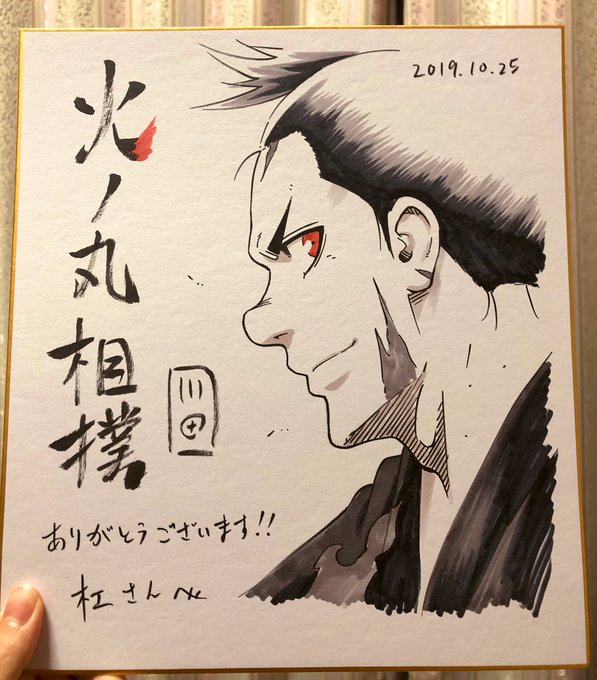 火ノ丸相撲
2019.10.25
川田
ありがとうございます!!
さんへ